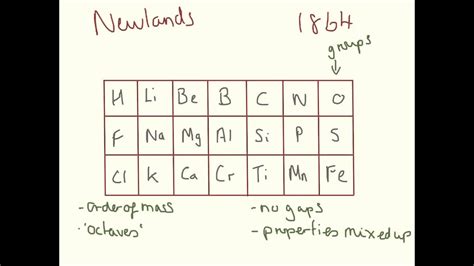 Newlands 1864
groups
H Li Be B C N O
F Na Mg Al Si P S
Cl K Ca Cr Ti Mn Fe
- order of mass - no gaps
- 'octaves' - properties mixed up